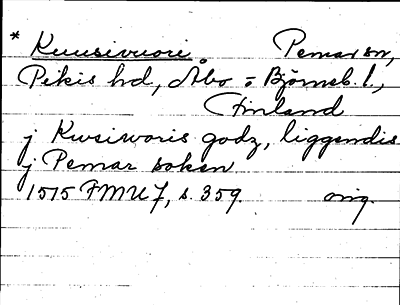 * Kuusivuori. Pemar sn,
Pikis hd, Åbo = Björneb. l.,
Finland
j Kwsiworis godz, liggendis
j Pemar soken
1515 FMU 7, s. 359. orig.